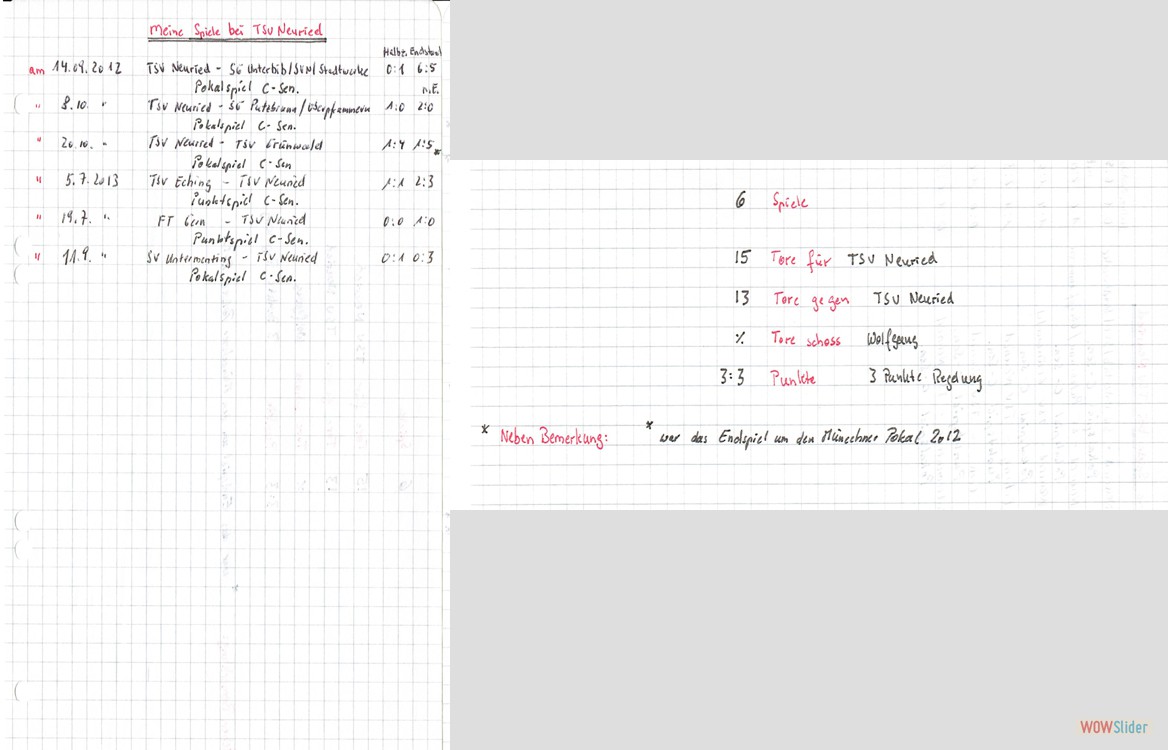 Meine Spiele bei TSV Neuried
Halbz. Endstand
am 14.09.2012 TSV Neuried - SG Unterbib/SVN/Stadtwerke 0:1 6:5
Pokalspiel C-Sen. n.E.
" 8.10. " TSV Neuried - SG Putzbrunn/ 1:0 2:0
Pokalspiel C-Sen.
" 20.10. " TSV Neuried - TSV Grünwald 1:4 1:5 *
Pokalspiel C-Sen
" 5.7.2013 TSV Eching - TSV Neuried 1:1 2:3
Punktspiel C-Sen.
" 19.7. " FT Gern - TSV Neuried 0:0 1:0
Punktspiel C-Sen.
" 11.9. " SV Untermenting - TSV Neuried 0:1 0:3
Pokalspiel C-Sen.
6 Spiele
15 Tore für TSV Neuried
13 Tore gegen TSV Neuried
% Tore schoss Wolfgang
3:3 Punkte 3 Punkte Regelung
* Neben Bemerkung: * war das Endspiel um den Münechner Pokal 2012
WOWSlider